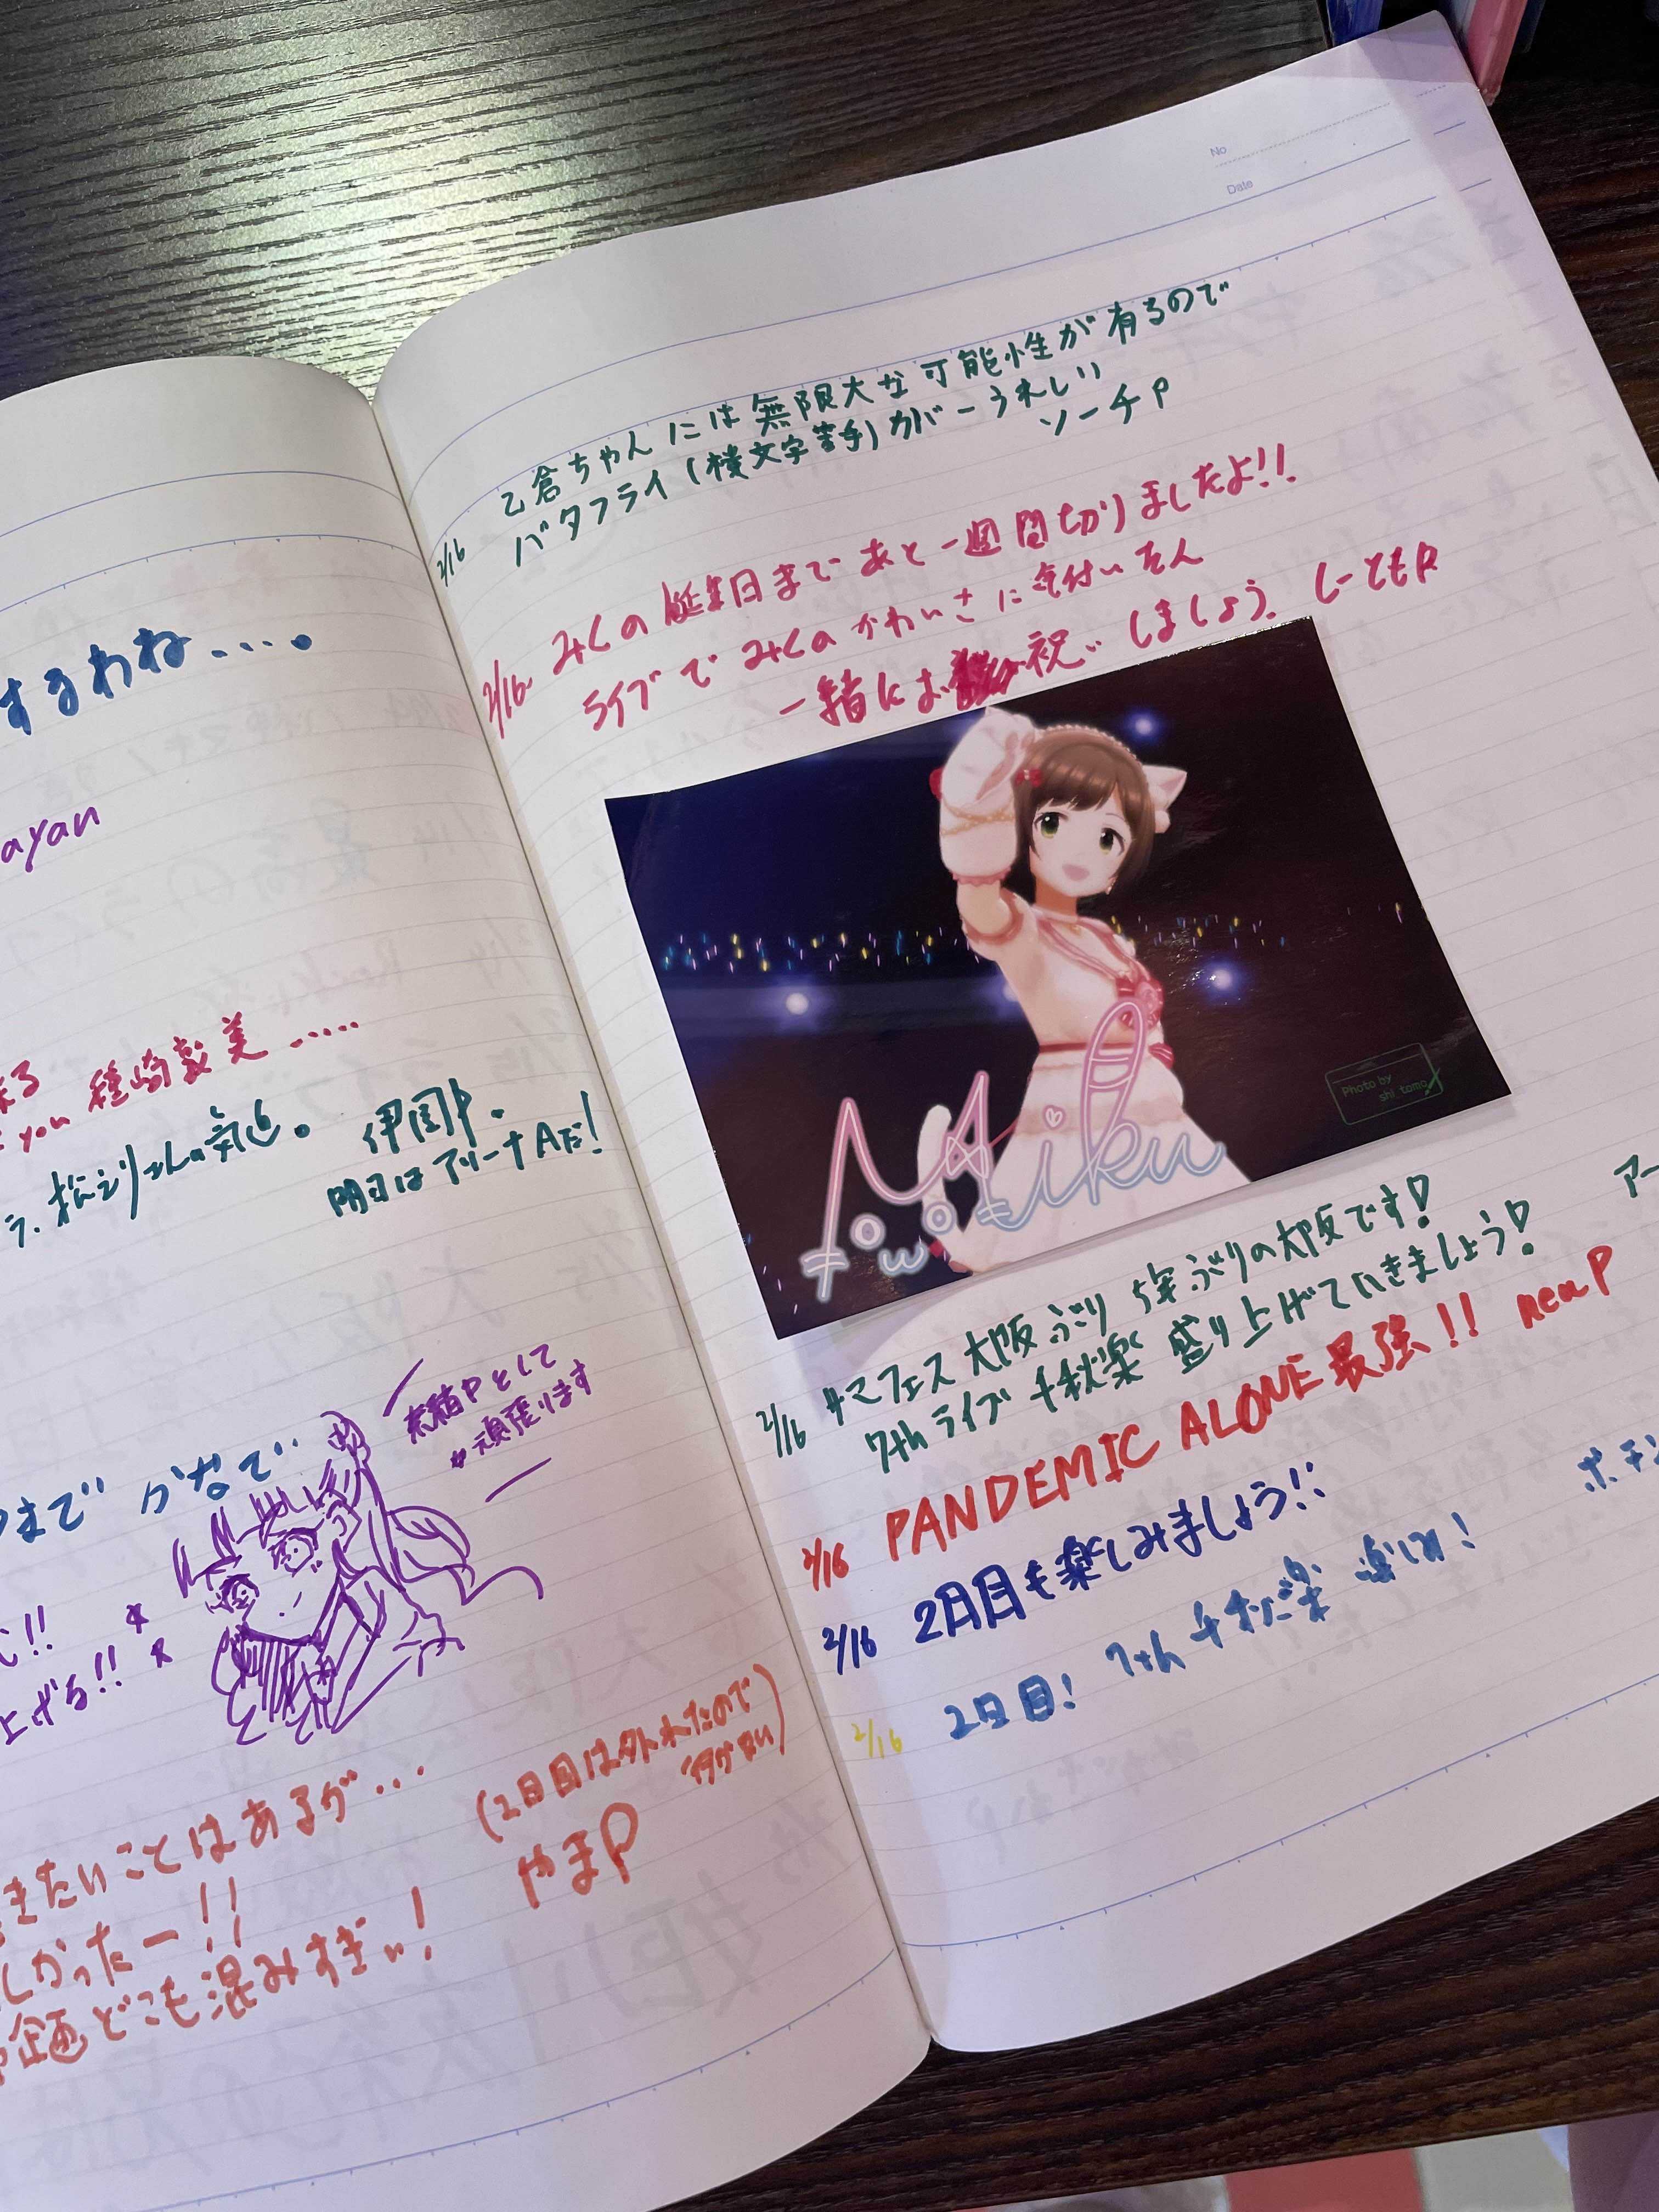 するわね....。
ayan
you 種﨑敦美 ......
伊国P.
明日はアリーナAだ!
までかなで
として
頑張ります
!!
上げる!!
きたいことはあるが...
(2日目は外れたので
行けない)
しかったー!!
やまP
企画どこも混みすぎぃ!
No
Date
2/16 乙倉ちゃんには無限大な可能性が有るので
バタフライ(横文字苦手)カバーうれしい
ソーチP
2/16 みくの誕生日まであと一週間切りましたよ!!
ライブでみくのかわいさに気付いた人
一緒にお祝いしましょう。しーともP
Miku
Photo by
shi_tomo
2/16 サマフェス大阪ぶり 5年ぶりの大阪です!
7thライブ千秋楽 盛り上げていきましょう!
2/16 PANDEMIC ALONE 最強!! neaP
2/16 2日目も楽しみましょう!!
2/16 2日目! 7th 千秋楽 楽しみ!